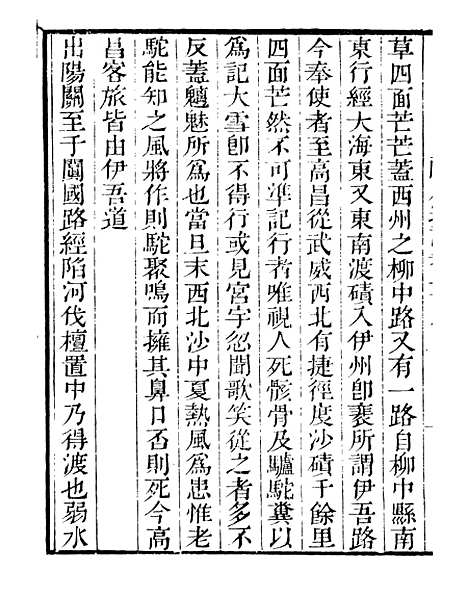 草四面芒芒蓋西州之柳中路又有一路自柳中縣南
東行經大海東又東南渡磧入伊州卽裴所謂伊吾路
今奉使者至高昌從武威西北有捷徑度沙磧千餘里
四面芒然不可準記行者唯視人死骸骨及驢駝糞以
爲記大雪卽不得行或見宮宇忽聞歌笑從之者多不
反蓋魑魅所爲也當旦末西北沙中夏熱風爲患惟老
駝能知之風將作則駝聚鳴而擁其鼻口否則死今高
昌客旅皆由伊吾道
出陽關至于闐國路經陷河伐檀置中乃得渡也弱水